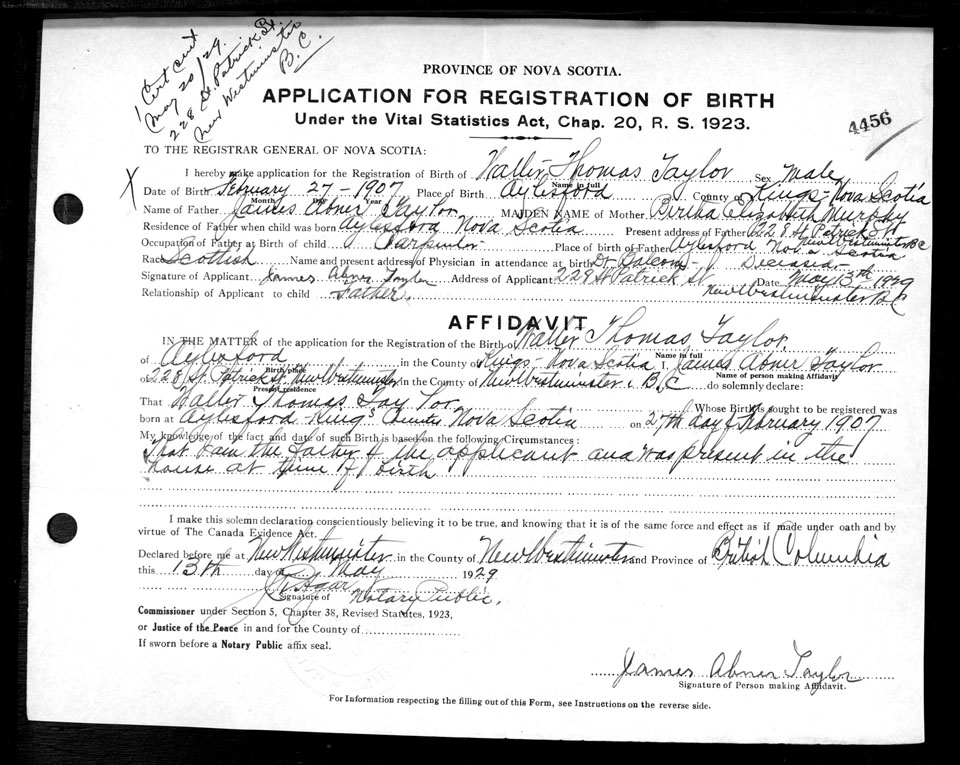 1 Cert cut
May 20/29.
228 St. Patrick St.
New Westminster
B.C.
PROVINCE OF NOVA SCOTIA.
APPLICATION FOR REGISTRATION OF BIRTH
Under the Vital Statistics Act, Chap. 20, R. S. 1923.
4456
TO THE REGISTRAR GENERAL OF NOVA SCOTIA:
I hereby make application for the Registration of Birth of Walter Thomas Taylor Sex Male
Name in full
X Date of Birth February 27 - 1907 Place of Birth Aylesford County of Kings - Nova Scotia
Month Day Year
Name of Father James Abner Taylor MAIDEN NAME of Mother Bertha Elizabeth Murphy
Residence of Father when child was born Aylesford Nova Scotia Present address of Father 228 St Patrick St
New Westminster BC
Occupation of Father at Birth of child Carpenter Place of birth of Father Aylesford Nova Scotia
Race Scottish Name and present address of Physician in attendance at birth Dr Balcom - Deceased
Signature of Applicant James Abner Taylor Address of Applicant 228 St Patrick St Date May 13th 1929
New Westminster B C
Relationship of Applicant to child Father.
AFFIDAVIT
IN THE MATTER of the application for the Registration of the Birth of Walter Thomas Taylor
Name in full
of Aylesford in the County of Kings - Nova Scotia I, James Abner Taylor
Birth place Name of person making Affidavit
of 228 St. Patrick St New Westminster in the County of New Westminster B C do solemnly declare:
Present residence
That Walter Thomas Taylor Whose Birth is sought to be registered was
born at Aylesford King's Counties Nova Scotia on 27th day of February 1907
My knowledge of the fact and date of such Birth is based on the following Circumstances:
That I am the Father of the applicant and was present in the
house at time of birth
I make this solemn declaration conscientiously believing it to be true, and knowing that it is of the same force and effect as if made under oath and by
virtue of The Canada Evidence Act.
Declared before me at New Westminster in the County of New Westminster and Province of British Columbia
this 13th day of May 1929
Agar
Signature of Notary Public.
Commissioner under Section 5, Chapter 38, Revised Statutes, 1923,
or Justice of the Peace in and for the County of
If sworn before a Notary Public affix seal.
James Abner Taylor
Signature of Person making Affidavit.
For Information respecting the filling out of this Form, see Instructions on the reverse side.